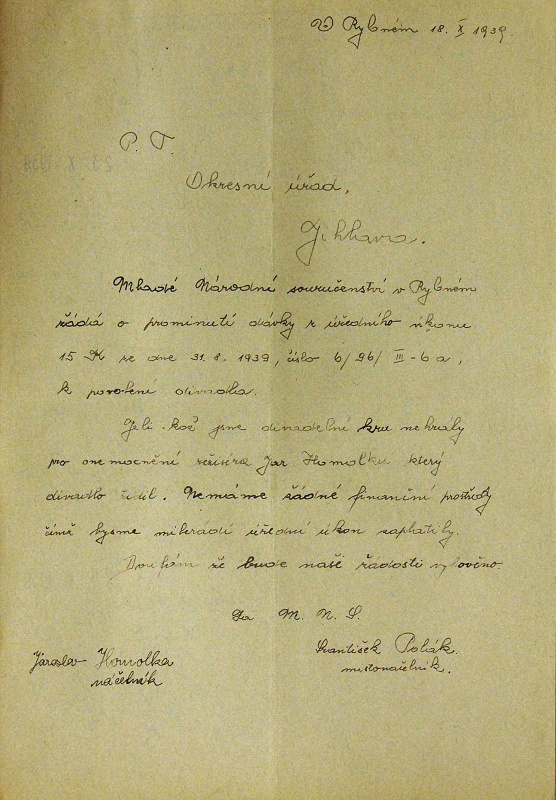 V Rybném 18. X 1939.
P. T.
Okresní úřad,
Jihlava.
Mladé Národní souručenství v Rybném
žádá o prominutí dávky z úředního úkonu
15 K ze dne 31. 8. 1939, číslo 6/96/III-6a,
k povolení divadla.
Jeli-kož jsme divadelní kru nehrály
pro onemocnění režiséra Jar Homolku který
divadlo řídil. Nemáme žádné finanční prostředy
čímž bysme mileradi úřední úkon zaplatily.
Doufám že bude naší žádosti vyhověno.
Za M. N. S.
Jaroslav Homolka
náčelník
František Polák.
místonáčelník.